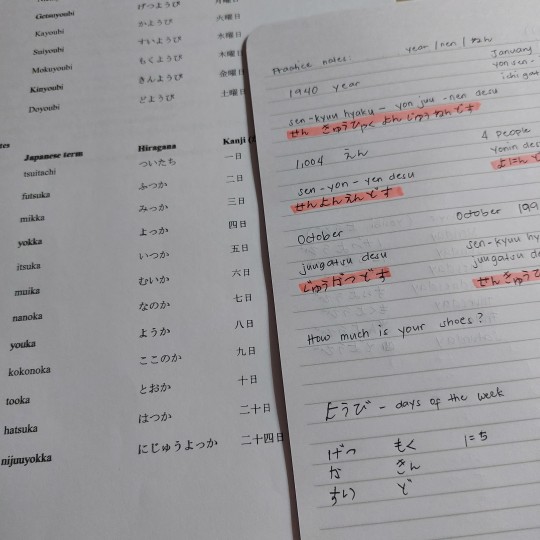 Getsuyoubi げつようび 月曜日
Kayoubi かようび 火曜日
Suiyoubi すいようび 水曜日
Mokuyoubi もくようび 木曜日
Kinyoubi きんようび 金曜日
Doyoubi どようび 土曜日
Japanese term Hiragana Kanji
tsuitachi ついたち 一日
futsuka ふつか 二日
mikka みっか 三日
yokka よっか 四日
itsuka いつか 五日
muika むいか 六日
nanoka なのか 七日
youka ようか 八日
kokonoka ここのか 九日
tooka とおか 十日
hatsuka はつか 二十日
nijuuyokka にじゅうよっか 二十四日
Practice notes: year / nen / ねん January
yon sen-
1940 year ichi gat
sen-kyuu hyaku - yon juu -nen desu
せん きゅうひゃく よんじゅうねんです
1,004 えん 4 people
sen-yon-yen desu yonin de
せんよんえんです よにん
October October 199
juugatsu desu sen-kyuu hy
じゅうがつです juugatsu de
せんきゅう
How much is your shoes?
ようび - days of the week
げつ もく にち
か きん
すい ど